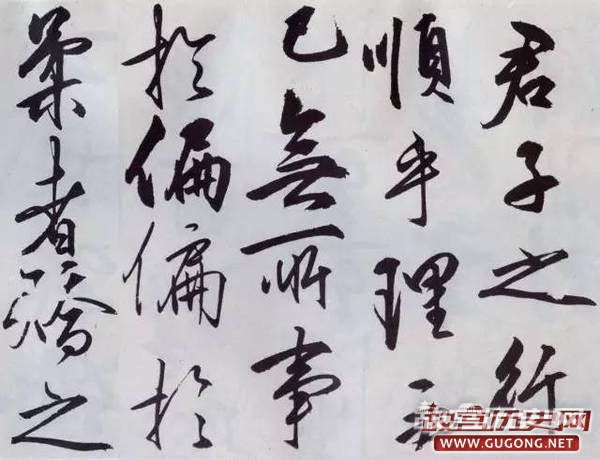 君子之行
順乎理而
已無所事
於偏偏於
柔者矯之
故宫历史网
WWW.GUGONG.NET